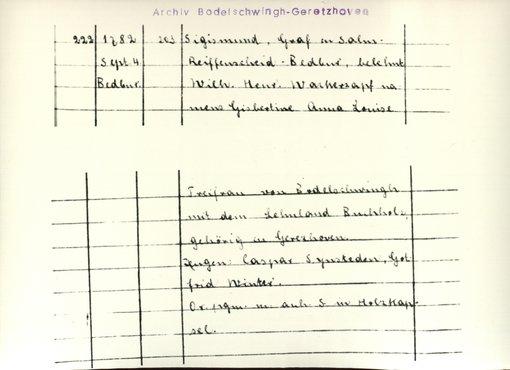 Archiv Bodelschwingh-Geretzhoven
222 1782 203 Sigismund, Graf zu Salm-
Sept 4. Reiffenscheid-Bedbur, belehnt
Bedbur. Wilh. Henr. Wacherzapf na
mens Gisbertine Anna Louise
Freifrau von Bodelschwingh
mit dem Lehnland Buchholz,
gehörig zu Gerezhoven.
Zeugen: Caspar Synsteden, Got
frid Winter.
Or. pgm. m. anh. S. in Holzkap-
sel.